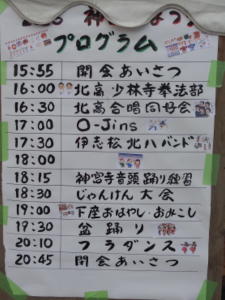 プログラム
15:55 開会あいさつ
16:00 北高少林寺拳法部
16:30 北高合唱同好会
17:00 O-Jins
17:30 伊志松北ハバンド
18:00
18:15 神宮寺音頭踊り練習
18:30 じゃんけん大会
19:00 下座おはやし・おみこし
19:30 盆踊り
20:10 フラダンス
20:45 閉会あいさつ